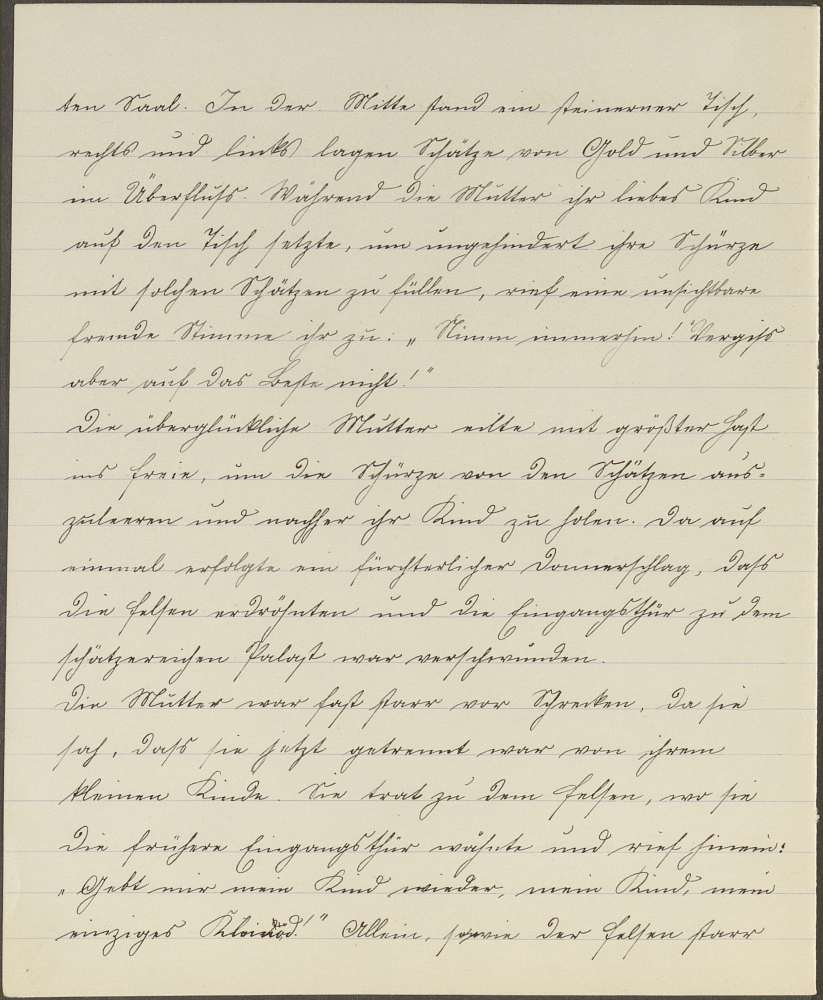 ten Saal. In der Mitte stand ein steinerner Tisch,
rechts und links lagen Schätze von Gold und Silber
im Überfluſs. Während die Mutter ihr liebes Kind
auf den Tisch setzte, um ungehindert ihre Schürze
mit solchen Schätzen zu füllen, rief eine unsichtbare
fremde Stimme ihr zu: „Nimm immerhin! Vergiſs
aber auf das Beste nicht!"
Die überglückliche Mutter eilte mit größter Hast
ins Freie, um die Schürze von den Schätzen aus-
zuleeren und nachher ihr Kind zu holen. Da auf
einmal erfolgte ein fürchterlicher Donnerschlag, daſs
die Felsen erdröhnten und die Eingangsthür zu dem
schätzereichen Palast war verschwunden.
Die Mutter war fast starr vor Schrecken, da sie
sah, daſs sie jetzt getrennt war von ihrem
kleinen Kinde. Sie trat zu dem Felsen, wo sie
die frühere Eingangsthür wähnte und rief hinein:
„Gebt mir mein Kind wieder, mein Kind, mein
einziges Kleinod!" Allein, sowie der Felsen starr